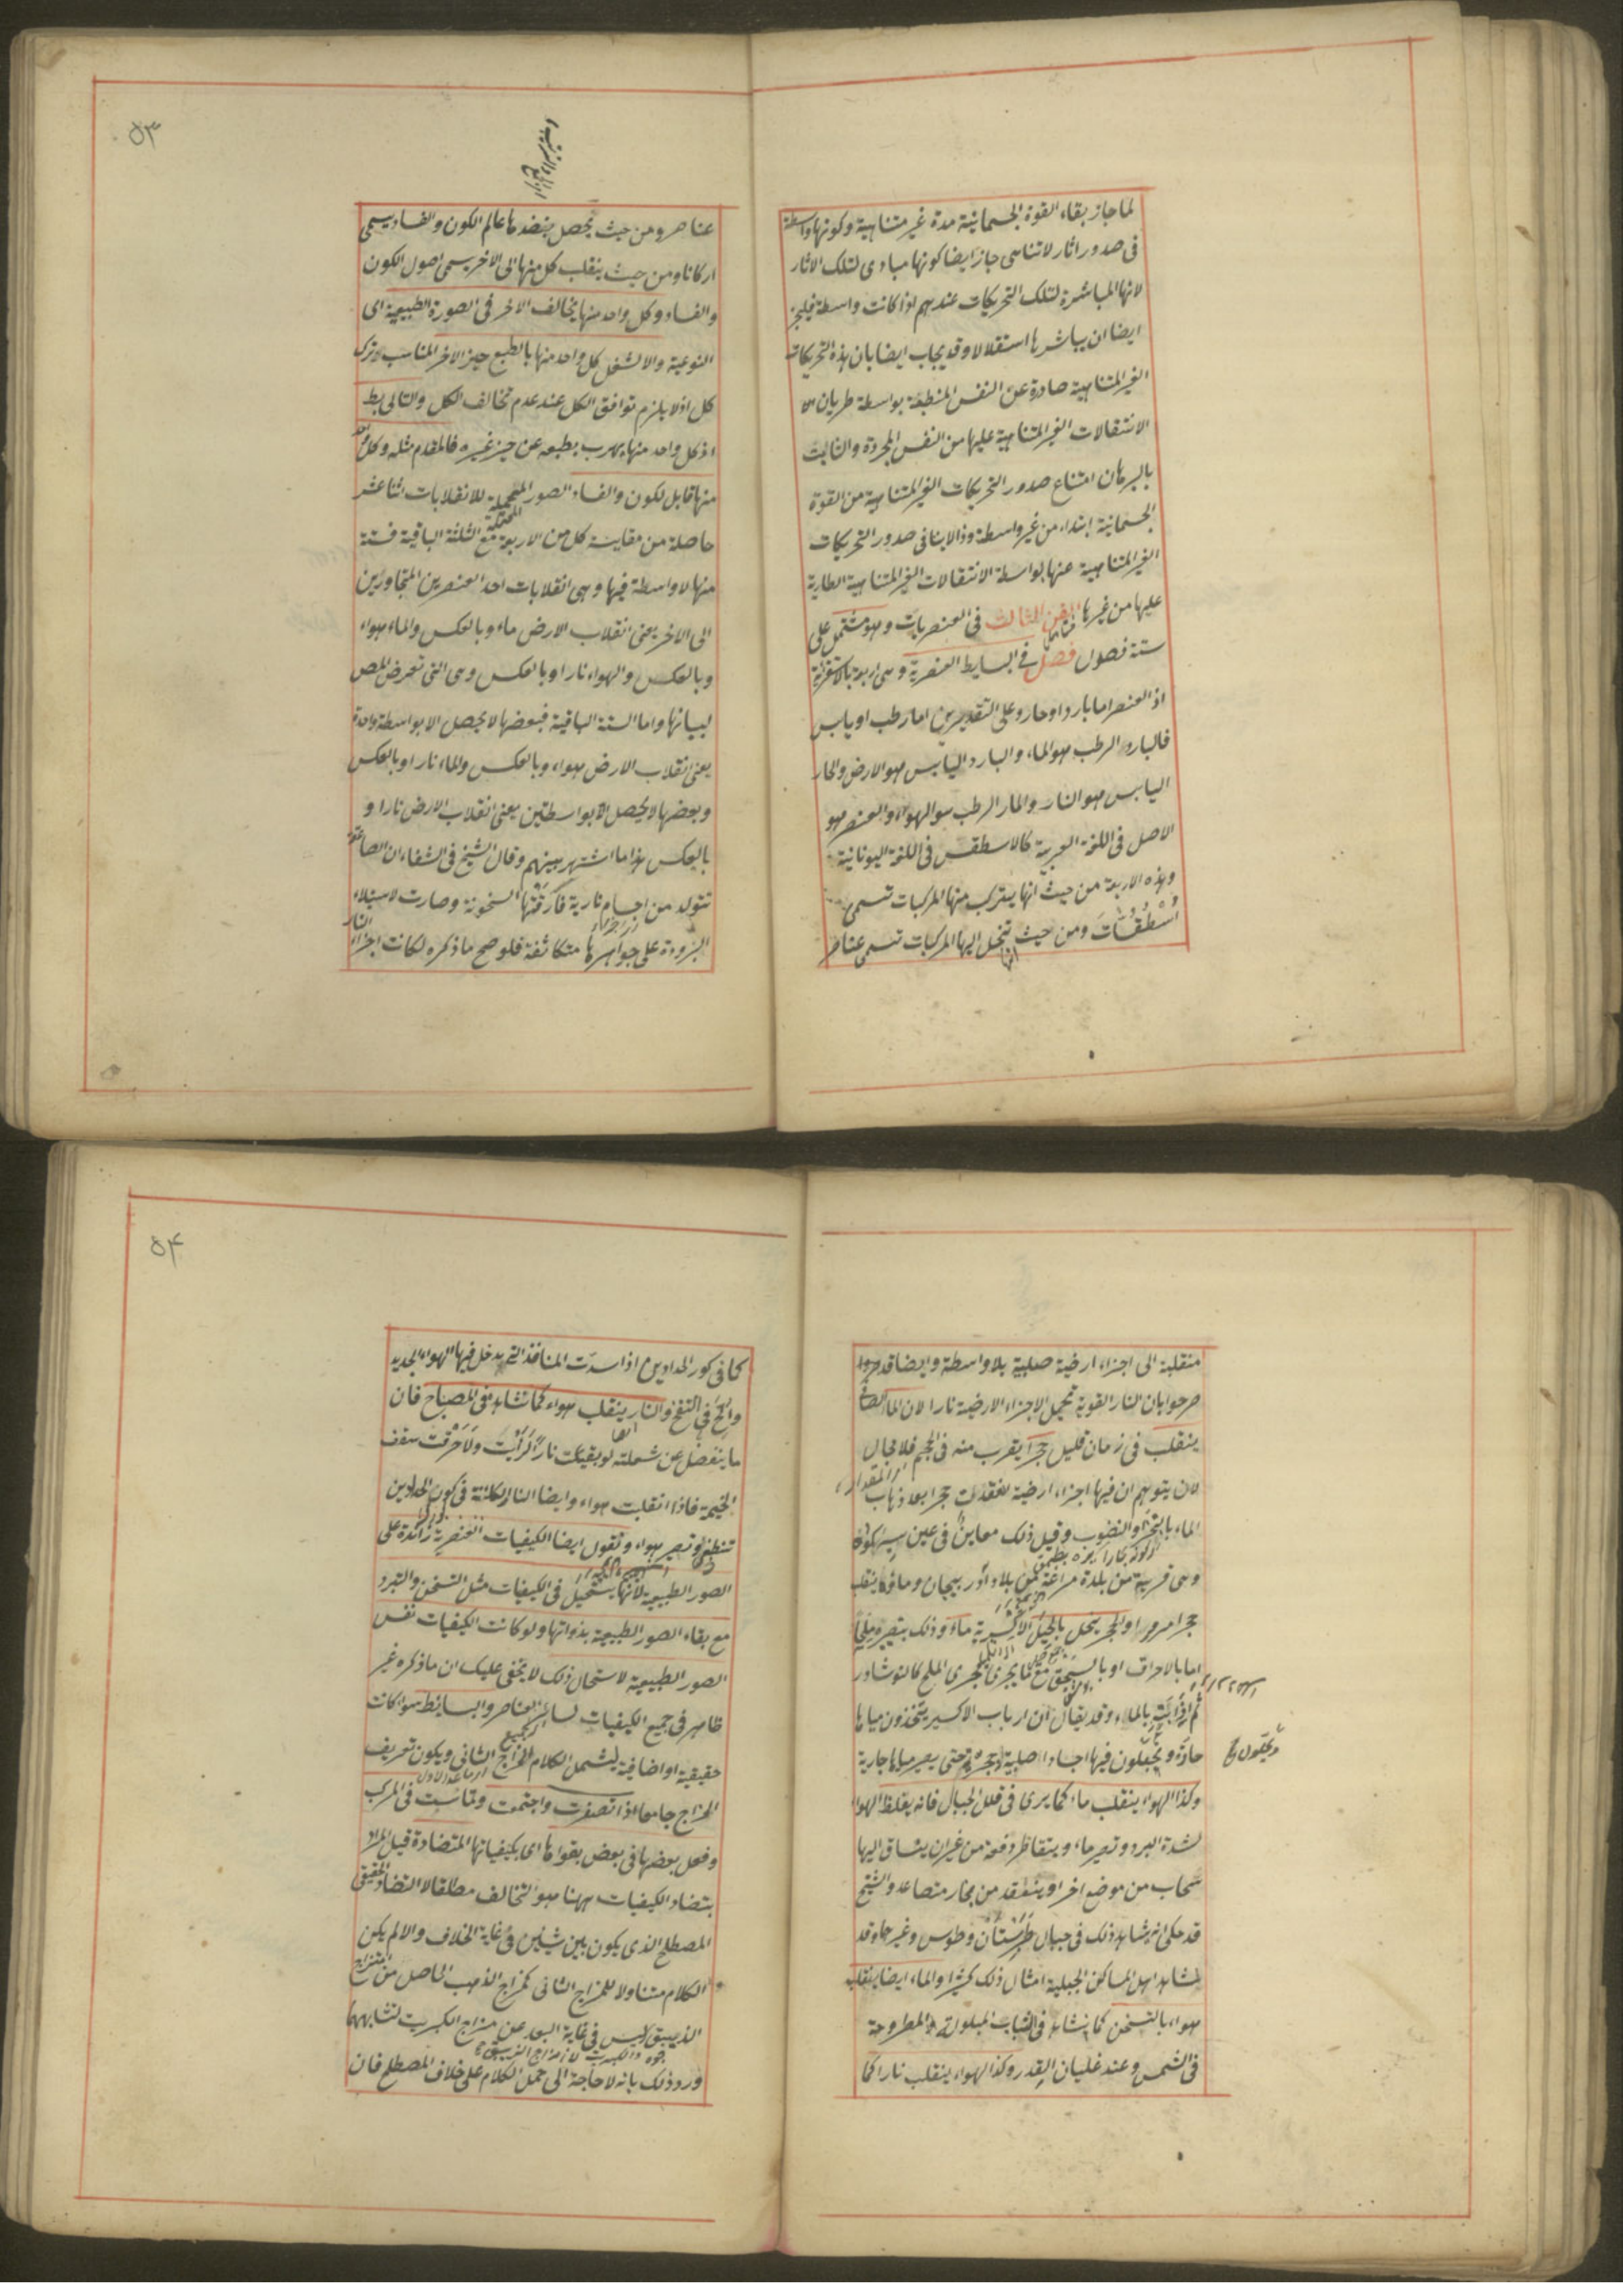 لما جاز بقاء القوة الجسمانية مدة غير متناهية وكونها واسطة
فى صدور اثار لا تتناهى جاز ايضا كونها مبادى لتلك الاثار
لانها المباشرة لتلك التحريكات عندهم اذا كانت واسطة فيلجز
ايضا ان يباشرها استقلالا وقد يجاب ايضا بان هذه التحريكات
الغير المتناهية صادرة عن النفس المنطبعة بواسطة طريان
الانتقالات الغير المتناهية عليها من النفس المجردة والثابت
بالبرهان امتناع صدور التحريكات الغير المتناهية من القوة
الجسمانية ابتداء من غير واسطة وذا لا ينافى صدور التحريكات
الغير المتناهية عنها بواسطة الانتقالات الغير المتناهية الطارية
عليها من غيرها الفن الثالث فى العنصريات وهو مشتمل على
ستة فصول فصل فى البسايط العنصرية وهى اربعة بالاستقراء
اذ العنصر اما بارد او حار وعلى التقديرين اما رطب او يابس
فالبارد الرطب هو الماء والبارد اليابس هو الارض والحار
اليابس هو النار والحار الرطب هو الهواء والعنصر هو
الاصل فى اللغة العربية كالاسطقس فى اللغة اليونانية
وهذه الاربعة من حيث انها يتركب منها المركبات تسمى
اُسْطُقُسّات ومن حيث تنحل اليها المركبات تسمى عناصر
٥٣
عناصر ومن حيث يحصل بنضدها عالم الكون والفساد يسمى
اركانا ومن حيث ينقلب كل منها الى الاخر يسمى اصول الكون
والفساد وكل واحد منها يخالف الاخر فى الصورة الطبيعية اى
النوعية والا لشغل كل واحد منها بالطبع حيز الاخر المناسب
كل اذ لا يلزم توافق الكل عند عدم تخالف الكل والتالى بط
اذ كل واحد منها يهرب بطبعه عن حيز غيره فالمقدم مثله وكل
منها قابل للكون والفساد الصور المحتملة للانقلابات اثنا عشر
حاصلة من مقايسة كل من الاربعة مع الثلثة الباقية فستة
منها لا واسطة فيها وهى انقلابات احد العنصرين المتجاورين
الى الاخر يعنى انقلاب الارض ماء وبالعكس والماء هواء
وبالعكس والهواء نارا وبالعكس وهى التى تعرض المص
لبيانها واما الستة الباقية فبعضها لا يحصل الا بواسطة واحدة
يعنى انقلاب الارض هواء وبالعكس والماء نارا وبالعكس
وبعضها لا يحصل الا بواسطتين يعنى انقلاب الارض نارا و
بالعكس هذا ما اشتهر بينهم وقال الشيخ فى الشفاء ان الصاعقة
تتولد من اجسام نارية فارقتها السخونة وصارت لاستيلاء
البرودة على جواهرها متكاثفة فلو صح ما ذكره لكانت اجزاء النار
منقلبة الى اجزاء ارضية صلبة بلا واسطة وايضا قد
صرحوا بان النار القوية تحيل الاجزاء الارضية نارا لان الماء الصافى
ينقلب فى زمان قليل حجرا يقرب منه فى الحجم فلا مجال
لان يتوهم ان فيها اجزاء ارضية انعقدت حجرا بعد ذهاب
الماء بالتبخر والنضوب وقيل ذلك معاين فى عين سيه كوه
وهى قرية من بلدة مراغة من بلاد آذربيجان وماؤها ينقلب
حجرا مرمرا والحجر ينحل بالحيل الاكسيرية ماء وذلك بتصييره ملحا
اما بالاحراق او بالسحق مع ما يجرى مجرى الملح كالنوشادر
ثم اذابته بالماء وقد يقال ان ارباب الاكسير يتخذون مياها
حادة ويجعلون فيها اجسادا صلبة حجرية حتى يصير مياها جارية
وكذا الهواء ينقلب ماء كما يرى فى قلل الجبال فانه يغلظ الهواء
لشدة البرد وتصير ماء ويتقاطر دفعة من غير ان ينساق اليها
سحاب من موضع اخر او ينعقد من بخار متصاعد والشيخ
قد حكى انه شاهد ذلك فى جبال طبرستان وطوس وغيرهما وقد
يشاهد اهل المساكن الجبلية امثال ذلك كثيرا والماء ايضا ينقلب
هواء بالتسخن كما يشاهد فى الثياب المبلولة المطروحة
فى الشمس وعند غليان القدر وكذا الهواء ينقلب نارا كما
٥٤
كما فى كور الحدادين اذا سدت المنافذ التى يدخل فيها الهواء الجديد
والح فى النفخ والنار ينقلب هواء كما يشاهد فى المصباح فان
ما ينفصل عن شعلته لو بقيت نارا لرأيت ولاحرقت سقف
الخيمة فاذا انقلبت هواء وايضا النار الكائنة فى كور الحدادين
تنطفئ وتصير هواء ونقول ايضا الكيفيات العنصرية زائدة على
الصور الطبيعية لانها يستحيل فى الكيفيات مثل التسخن والتبرد
مع بقاء الصور الطبيعية بذواتها ولو كانت الكيفيات نفس
الصور الطبيعية لاستحال ذلك لا يخفى عليك ان ما ذكره غير
ظاهر فى جميع الكيفيات لسائر العناصر والبسائط سواء كانت
حقيقية او اضافية ليشمل الكلام المزاج الثانى ويكون تعريف
المزاج جامعا اذا تصغرت واجتمعت وتماست فى المركب
وفعل بعضها فى بعض بقواها اى بكيفياتها المتضادة قيل المراد
بتضاد الكيفيات ههنا هو التخالف مطلقا لا التضاد الحقيقى
المصطلح الذى يكون بين شيئين فى غاية الخلاف والا لم يكن
الكلام متناولا للمزاج الثانى كمزاج الذهب الحاصل من امتزاج
الذيبق ليس فى غاية البعد عن مزاج الكبريت لتشابههما
ورد ذلك بانه لا حاجة الى حمل الكلام على خلاف المصطلح فان